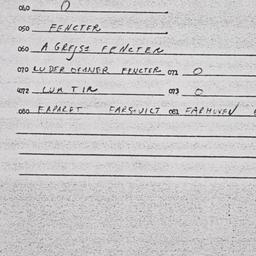 040 0
050 FENCTER
060 A GREJSE FENCTER
070 LU DER DENNER FENCTER 071 0
072 LUR TIR 073 0
080 FAPARET FARGUICT 081 FARHUVEN